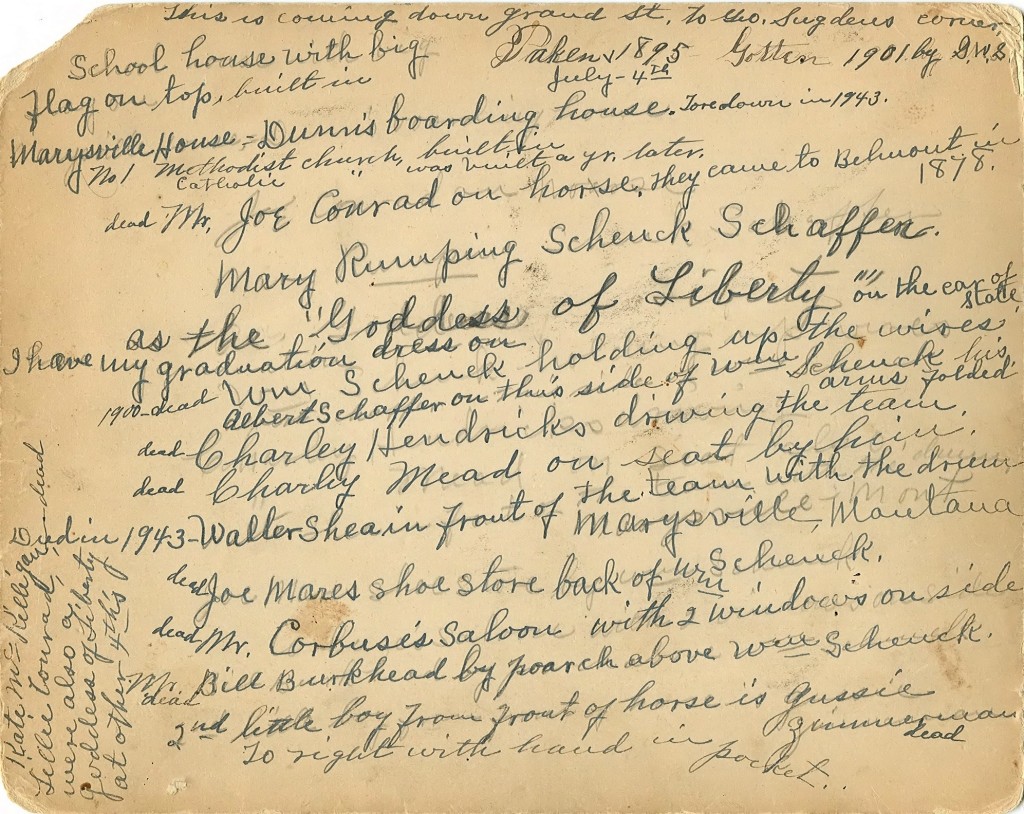 This is coming down grand St. to Geo. Sugdens corner.
School house with big
Taken 1895 Gotten 1901 by D.W.S.
July-4th
Flag on top, built in
Marysville House = Dunn's boarding house. Tore down in 1943.
No 1 Methodist church, built in
Catholic " was built a yr. later.
dead Mr. Joe Conrad on horse. They came to Belmont in
1878.
Mary Rumping Schenck Schaffer.
as the "Goddess of Liberty" on the car of
State
I have my graduation dress on
1900-dead Wm Schenck holding up the wires
Albert Schaffer on this side of Wm Schenck his
arms folded
dead Charley Hendricks driving the team.
dead Charley Mead on seat by him.
Died in 1943-Walter Shea in front of the team with the drum
Marysville, Montana
dead Joe Mares shoe store back of Wm Schenck.
dead Mr. Corbusis Saloon with 2 windows on side
Mr. Bill Burkhead by poarch above Wm Schenck.
dead
2nd little boy from front of horse is Gussie
Zimmerman
dead
To right with hand in
pocket..
Katie Mc Killigan-dead
Lillie Conrad,
were also a
goddess of Liberty
at other 4ths